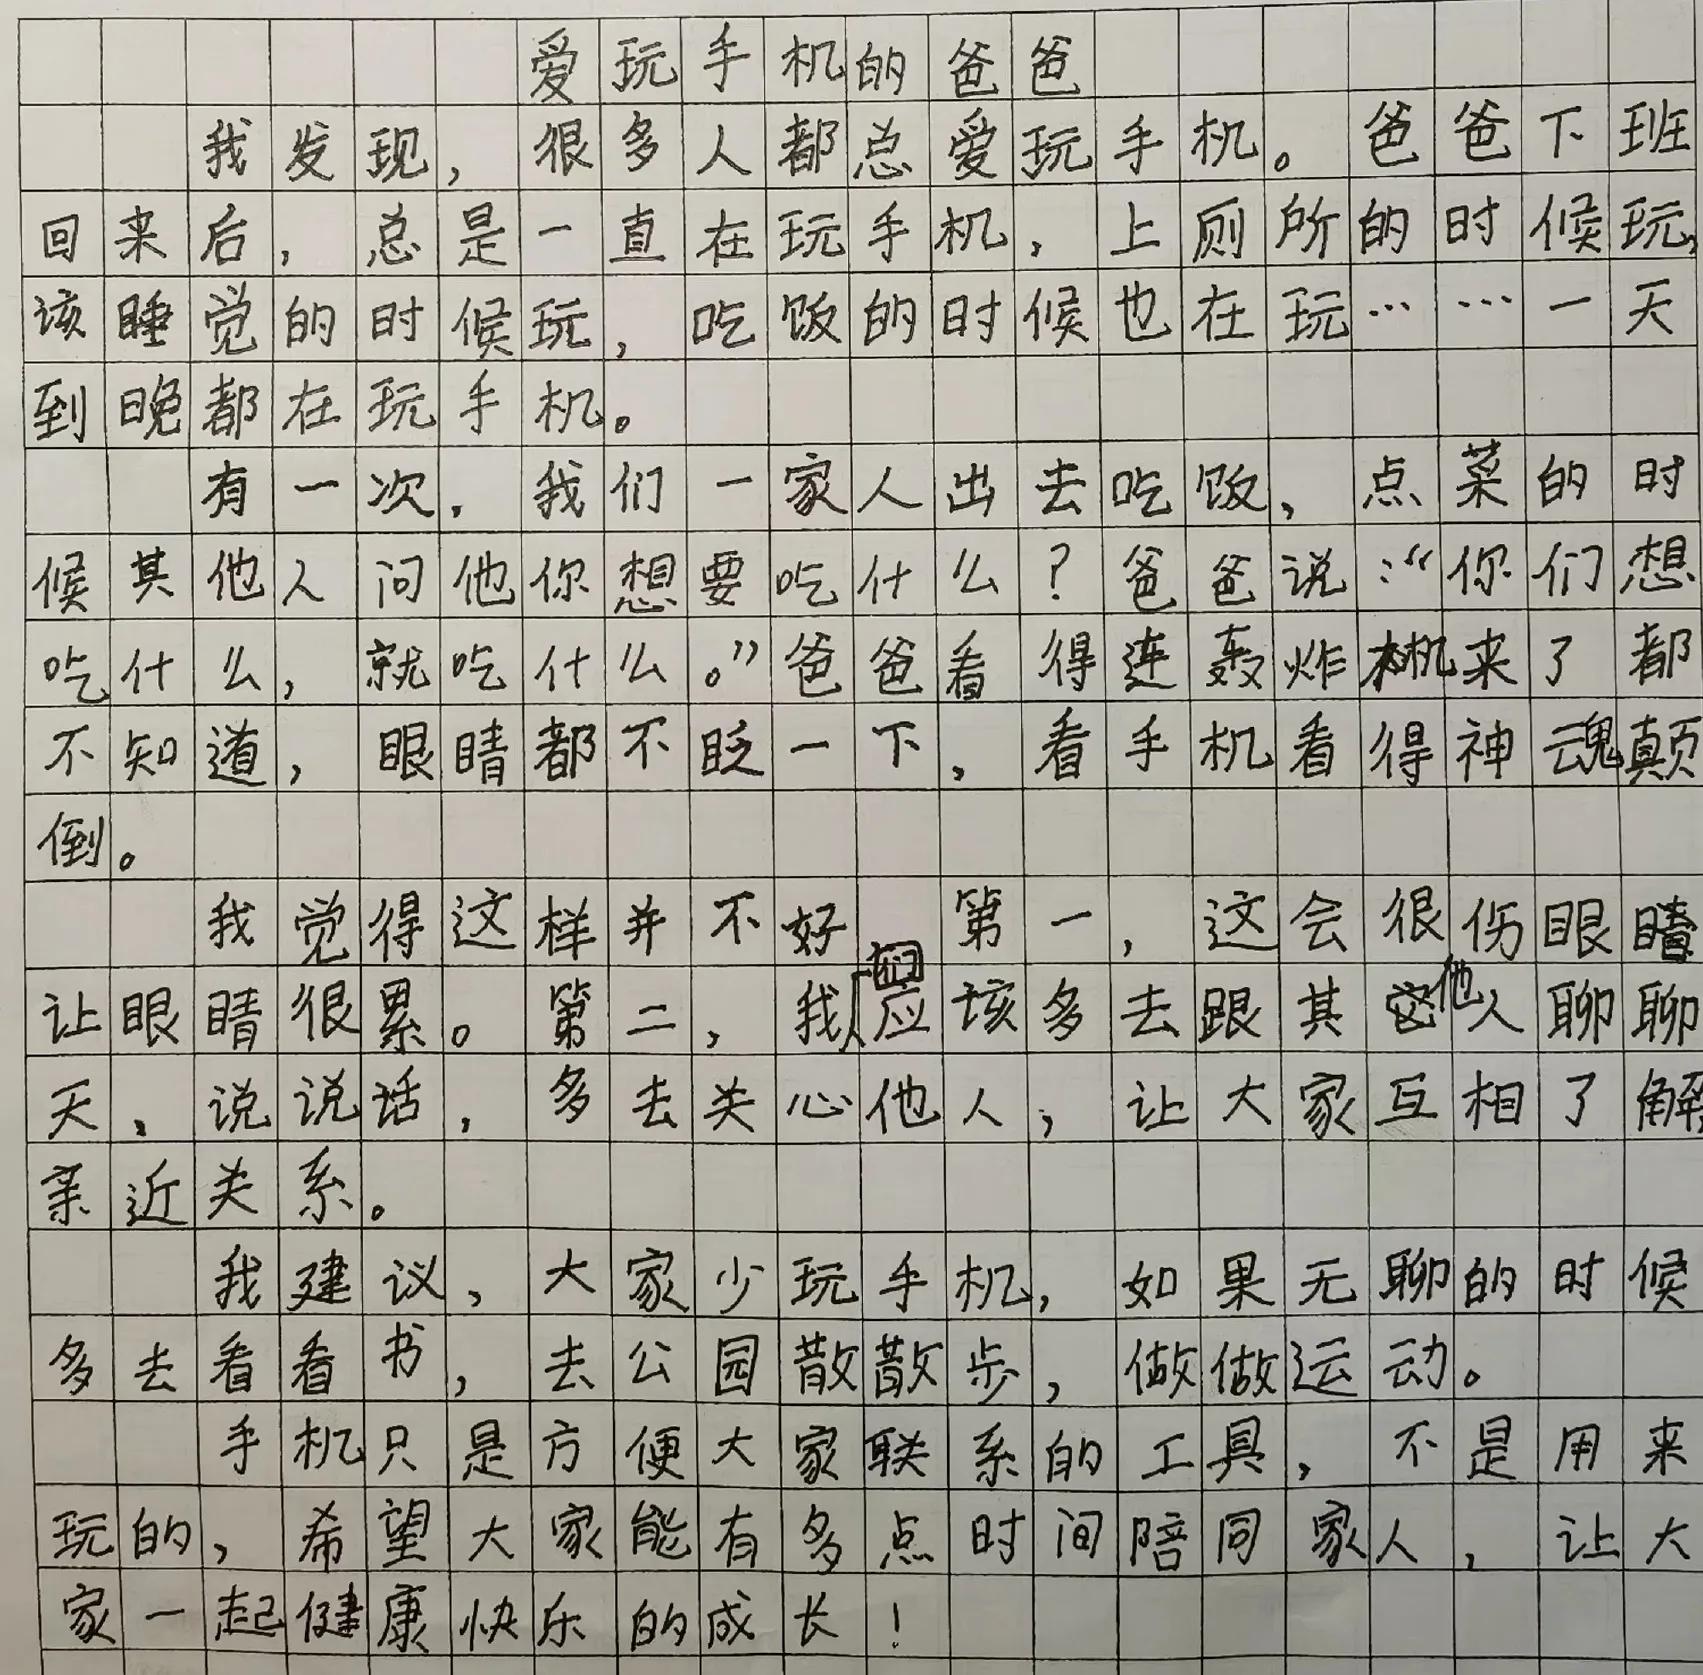 爱玩手机的爸爸
我发现，很多人都总爱玩手机。爸爸下班
回来后，总是一直在玩手机，上厕所的时候玩，
该睡觉的时候玩，吃饭的时候也在玩……一天
到晚都在玩手机。
有一次，我们一家人出去吃饭，点菜的时
候其他人问他你想要吃什么？爸爸说：“你们想
吃什么，就吃什么。”爸爸看得连轰炸机来了都
不知道，眼睛都不眨一下，看手机看得神魂颠
倒。
我觉得这样并不好 第一，这会很伤眼睛
让眼睛很累。第二，我们应该多去跟其他人聊聊
天，说说话，多去关心他人，让大家互相了解，
亲近关系。
我建议，大家少玩手机，如果无聊的时候
多去看看书，去公园散散步，做做运动。
手机只是方便大家联系的工具，不是用来
玩的，希望大家能有多点时间陪同家人，让大
家一起健康快乐的成长！